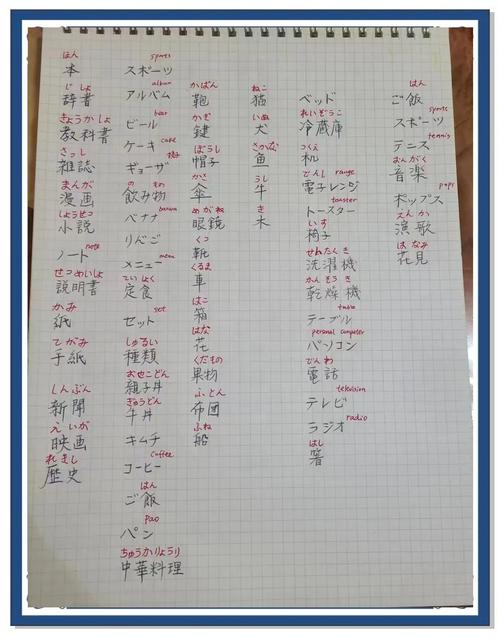 はん
本
じしょ
辞書
きょうかしょ
教科書
ざっし
雑誌
まんが
漫画
しょうせつ
小説
note
ノート
せつめいしょ
説明書
かみ
紙
てがみ
手紙
しんぶん
新聞
えいが
映画
れきし
歴史
sports
スポーツ
album
アルバム
bear
ビール
cake
ケーキ
ギョーザ
の もの
飲み物
banana
バナナ
りんご
menu
メニュー
ていしょく
定食
set
セット
しゅるい
種類
親子丼
ぎゅうどん
牛丼
キムチ
coffee
コーヒー
はん
ご飯
pao
パン
ちゅうかりょうり
中華料理
かばん
鞄
かぎ
鍵
ぼうし
帽子
かさ
傘
めがね
眼鏡
くつ
靴
くるま
車
はこ
箱
はな
花
くだもの
果物
ふとん
布団
ふね
船
ねこ
猫
いぬ
犬
さかな
魚
うし
牛
き
木
ベッド
れいぞうこ
冷蔵庫
つくえ
机
でんし range
電子レンジ
toaster
トースター
いす
椅子
せんたくき
洗濯機
かんそうき
乾燥機
table
テーブル
personal computer
パソコン
でんわ
電話
television
テレビ
radio
ラジオ
はし
箸
はん
ご飯
sports
スポーツ
tennis
テニス
おんがく
音楽
pops
ポップス
えんか
演歌
はなみ
花見